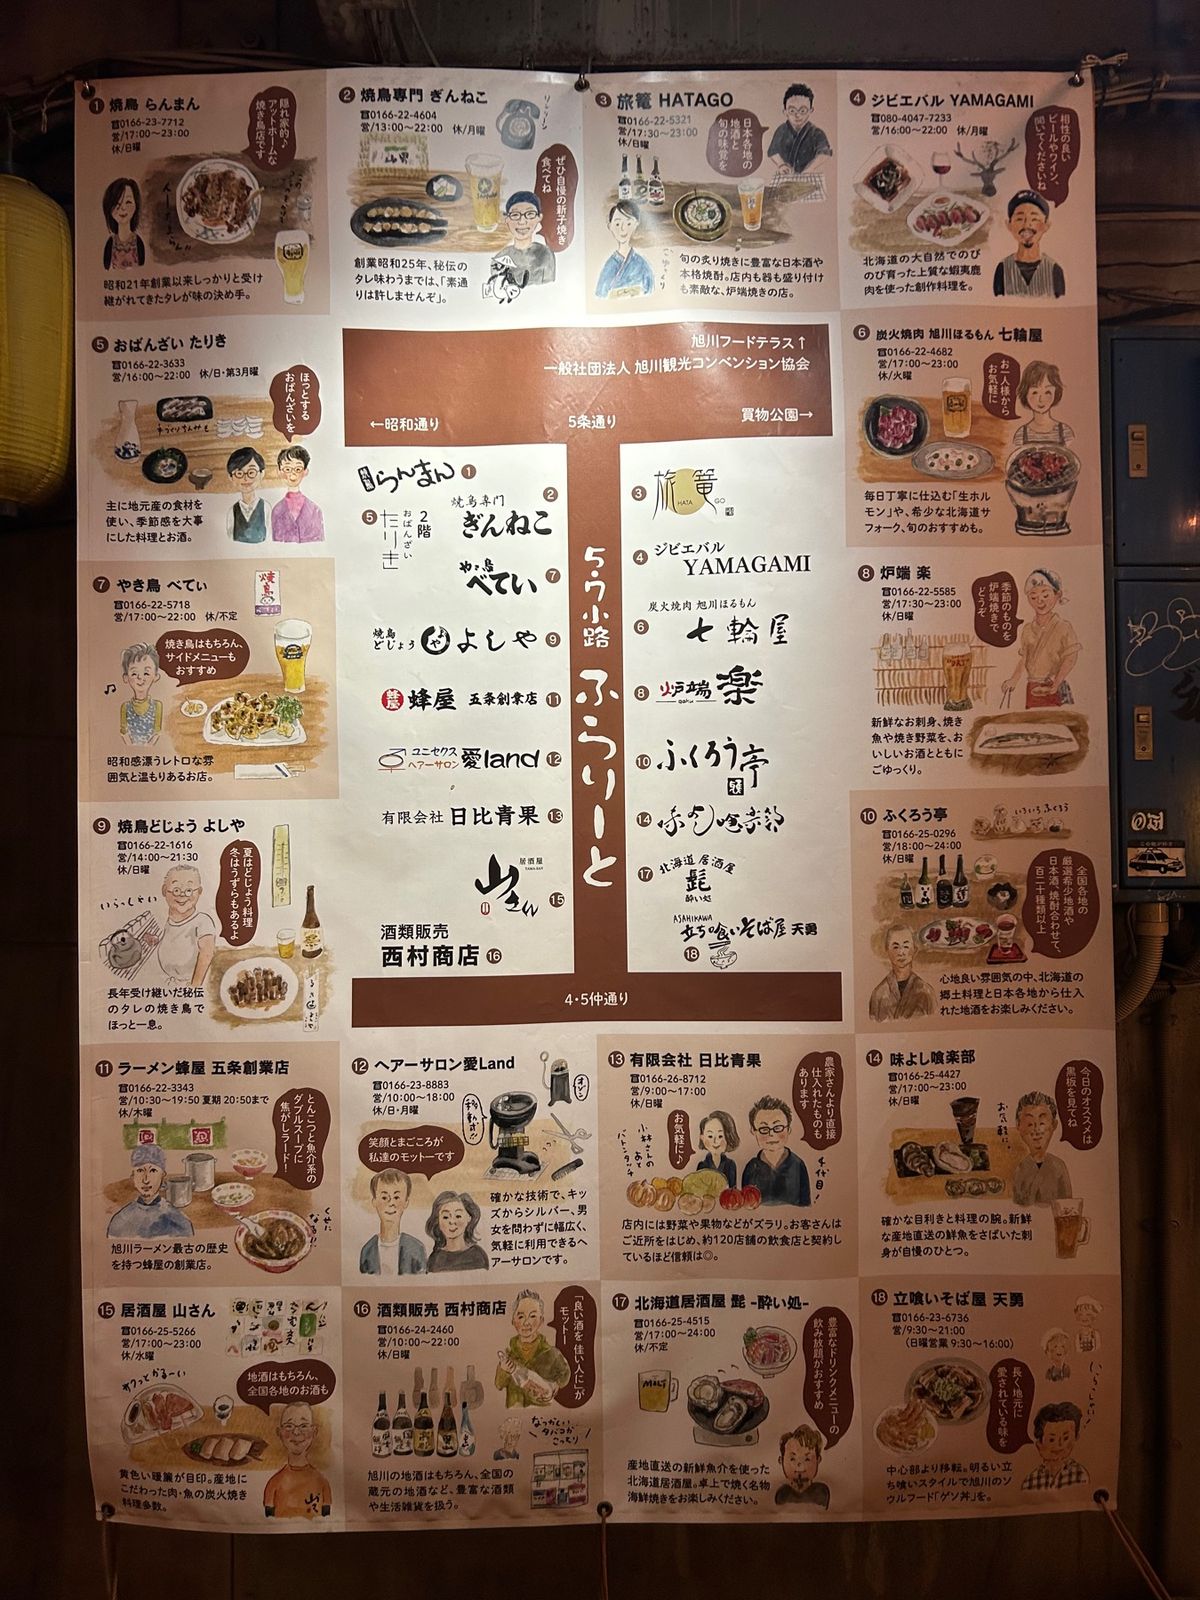 1 焼鳥 らんまん
☎0166-23-7712
営/17:00〜23:00
休/日曜
隠れ家的♪
アットホームな
焼き鳥店です
昭和21年創業以来しっかりと受け
継がれてきたタレが味の決め手。
2 焼鳥専門 ぎんねこ
☎0166-22-4604
営/13:00〜22:00 休/月曜
ぜひ自慢の新子焼き
食べてね
創業昭和25年、秘伝の
タレ味わうまでは、「素通
りは許しませんぞ」。
3 旅篭 HATAGO
☎0166-22-5321
営/17:30〜23:00
休/日曜
日本各地の
地酒と
旬の味覚を
旬の炙り焼きに豊富な日本酒や
本格焼酎。店内も器も盛り付け
も素敵な、炉端焼きの店。
4 ジビエバル YAMAGAMI
☎080-4047-7233
営/16:00〜22:00 休/月曜
相性の良い
ビールやワイン、
聞いてくださいね
北海道の大自然でのび
のび育った上質な蝦夷鹿
肉を使った創作料理を。
5 おばんざい たりき
☎0166-22-3633
営/16:00〜22:00 休/日・第3月曜
ほっとする
おばんざいを
主に地元産の食材を
使い、季節感を大事
にした料理とお酒。
旭川フードテラス↑
一般社団法人 旭川観光コンベンション協会
←昭和通り
5条通り
買物公園→
らんまん 1
2
焼鳥専門
ぎんねこ
5
おばんざい
たりき
2階
やき鳥
べてい 7
焼鳥
どじょう よしや 9
蜂屋 五条創業店 11
ユニセクス
ヘアーサロン 愛land 12
有限会社 日比青果 13
居酒屋
山さん 15
酒類販売
西村商店 16
5・7小路 ふらりーと
3 旅篭
HATA GO
4 ジビエバル
YAMAGAMI
炭火焼肉 旭川ほるもん
6 七輪屋
8 炉端 楽
gaku
10 ふくろう亭
14 味よし喰楽部
17 北海道居酒屋
髭
酔い処
ASAHIKAWA
立ち喰いそば屋 天勇
18
4・5仲通り
6 炭火焼肉 旭川ほるもん 七輪屋
☎0166-22-4682
営/17:00〜23:00
休/火曜
お一人様から
お気軽に
毎日丁寧に仕込む「生ホル
モン」や、希少な北海道サ
フォーク、旬のおすすめも。
7 やき鳥 べてい
☎0166-22-5718
営/17:00〜22:00 休/不定
焼鳥
焼き鳥はもちろん、
サイドメニューも
おすすめ
昭和感漂うレトロな雰
囲気と温もりあるお店。
8 炉端 楽
☎0166-22-5585
営/17:30〜23:00
休/日曜
季節のものを
炉端焼きで
どうぞ
新鮮なお刺身、焼き
魚や焼き野菜を、お
いしいお酒とともに
ごゆっくり。
9 焼鳥どじょう よしや
☎0166-22-1616
営/14:00〜21:30
休/日曜
夏はどじょう料理
冬はうずらもあるよ
いらっしゃい
長年受け継いだ秘伝
のタレの焼き鳥で
ほっと一息。
10 ふくろう亭
☎0166-25-0296
営/18:00〜24:00
休/日曜
いろいろふくろう
全国各地の
厳選希少地酒や
日本酒、焼酎合わせて、
百二十種類以上
心地良い雰囲気の中、北海道の
郷土料理と日本各地から仕入
れた地酒をお楽しみください。
11 ラーメン蜂屋 五条創業店
☎0166-22-3343
営/10:30〜19:50 夏期 20:50まで
休/木曜
とんこつと魚介系の
ダブルスープに
焦がしラード!
くせに
なる!!
旭川ラーメン最古の歴史
を持つ蜂屋の創業店。
12 ヘアーサロン愛Land
☎0166-23-8883
営/10:00〜18:00
休/日・月曜
笑顔とまごころが
私達のモットーです
確かな技術で、キッ
ズからシルバー、男
女を問わずに幅広く、
気軽に利用できるヘ
アーサロンです。
13 有限会社 日比青果
☎0166-26-8712
営/9:00〜17:00
休/日曜
農家さんより直接
仕入れたものも
あります
お気軽に♪
小林さんの
あと
バトンタッチ
店内には野菜や果物などがズラリ。お客さんは
ご近所をはじめ、約120店舗の飲食店と契約し
ているほど信頼は◎。
14 味よし喰楽部
☎0166-25-4427
営/17:00〜23:00
休/日曜
今日のオススメは
黒板を見てね
お気軽に
確かな目利きと料理の腕。新鮮
な産地直送の鮮魚をさばいた刺
身が自慢のひとつ。
15 居酒屋 山さん
☎0166-25-5266
営/17:00〜23:00
休/水曜
地酒はもちろん、
全国各地のお酒も
黄色い暖簾が目印。産地に
こだわった肉・魚の炭火焼き
料理多数。
16 酒類販売 西村商店
☎0166-24-2460
営/10:00〜22:00
休/日曜
「良い酒を 佳い人に」が
モットー
なつかしい
タバコが
こっちり
旭川の地酒はもちろん、全国の
蔵元の地酒など、豊富な酒類
や生活雑貨を扱う。
17 北海道居酒屋 髭 -酔い処-
☎0166-25-4515
営/17:00〜24:00
休/不定
豊富なドリンクメニューの
飲み放題がおすすめ
産地直送の新鮮魚介を使った
北海道居酒屋。卓上で焼く名物
海鮮焼きをお楽しみください。
18 立喰いそば屋 天勇
☎0166-23-6736
営/9:30〜21:00
(日曜営業 9:30〜16:00)
長く地元に
愛されている味を
いらっしゃい!
中心部より移転。明るい立
ち喰いスタイルで旭川のソ
ウルフード「ゲソ丼」を。